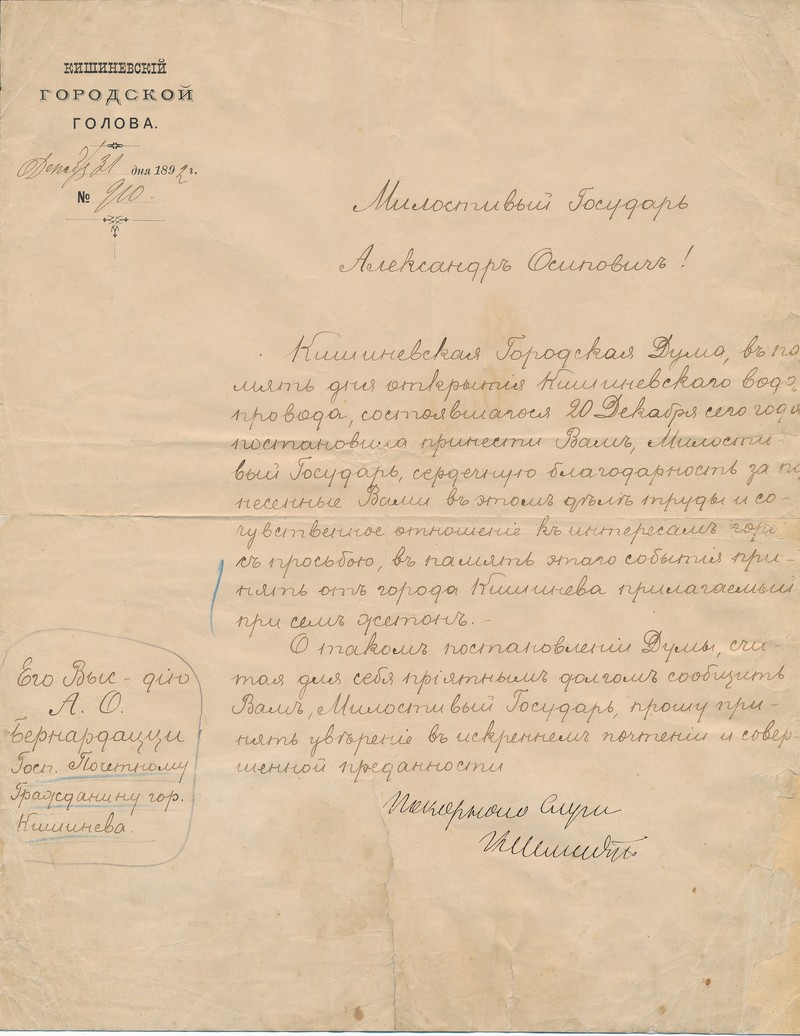 КИШИНЕВСКІЙ
ГОРОДСКОЙ
ГОЛОВА.
Декабр 31 дня 1892 г.
№ 910.
Милостивый Государь
Александръ Осиповичъ!
Кишиневская Городская Дума, въ па
мять дня открытія Кишиневскаго водо
провода, состоявшагося 20 Декабря сего года
постановила принести Вамъ, Милости-
вый Государь, сердечную благодарность за по
несенные Вами въ этомъ дѣлѣ труды и со-
чувственное отношеніе къ интересамъ гор
съ просьбою, въ память этого событія при-
нять отъ города Кишинева прилагаемый
при семъ жетонъ. -
О такомъ постановленіи Думы, счи-
тая для себя пріятнымъ долгомъ сообщить
Вамъ, Милостивый Государь, прошу при-
нять увѣреніе въ искреннемъ почтеніи и совер-
шенной преданности
Покорнаго Слуги
КШмидтъ
Его Выс-дію
А. О.
Бернардацци
Госп. Почетному
Гражданину гор.
Кишинева.